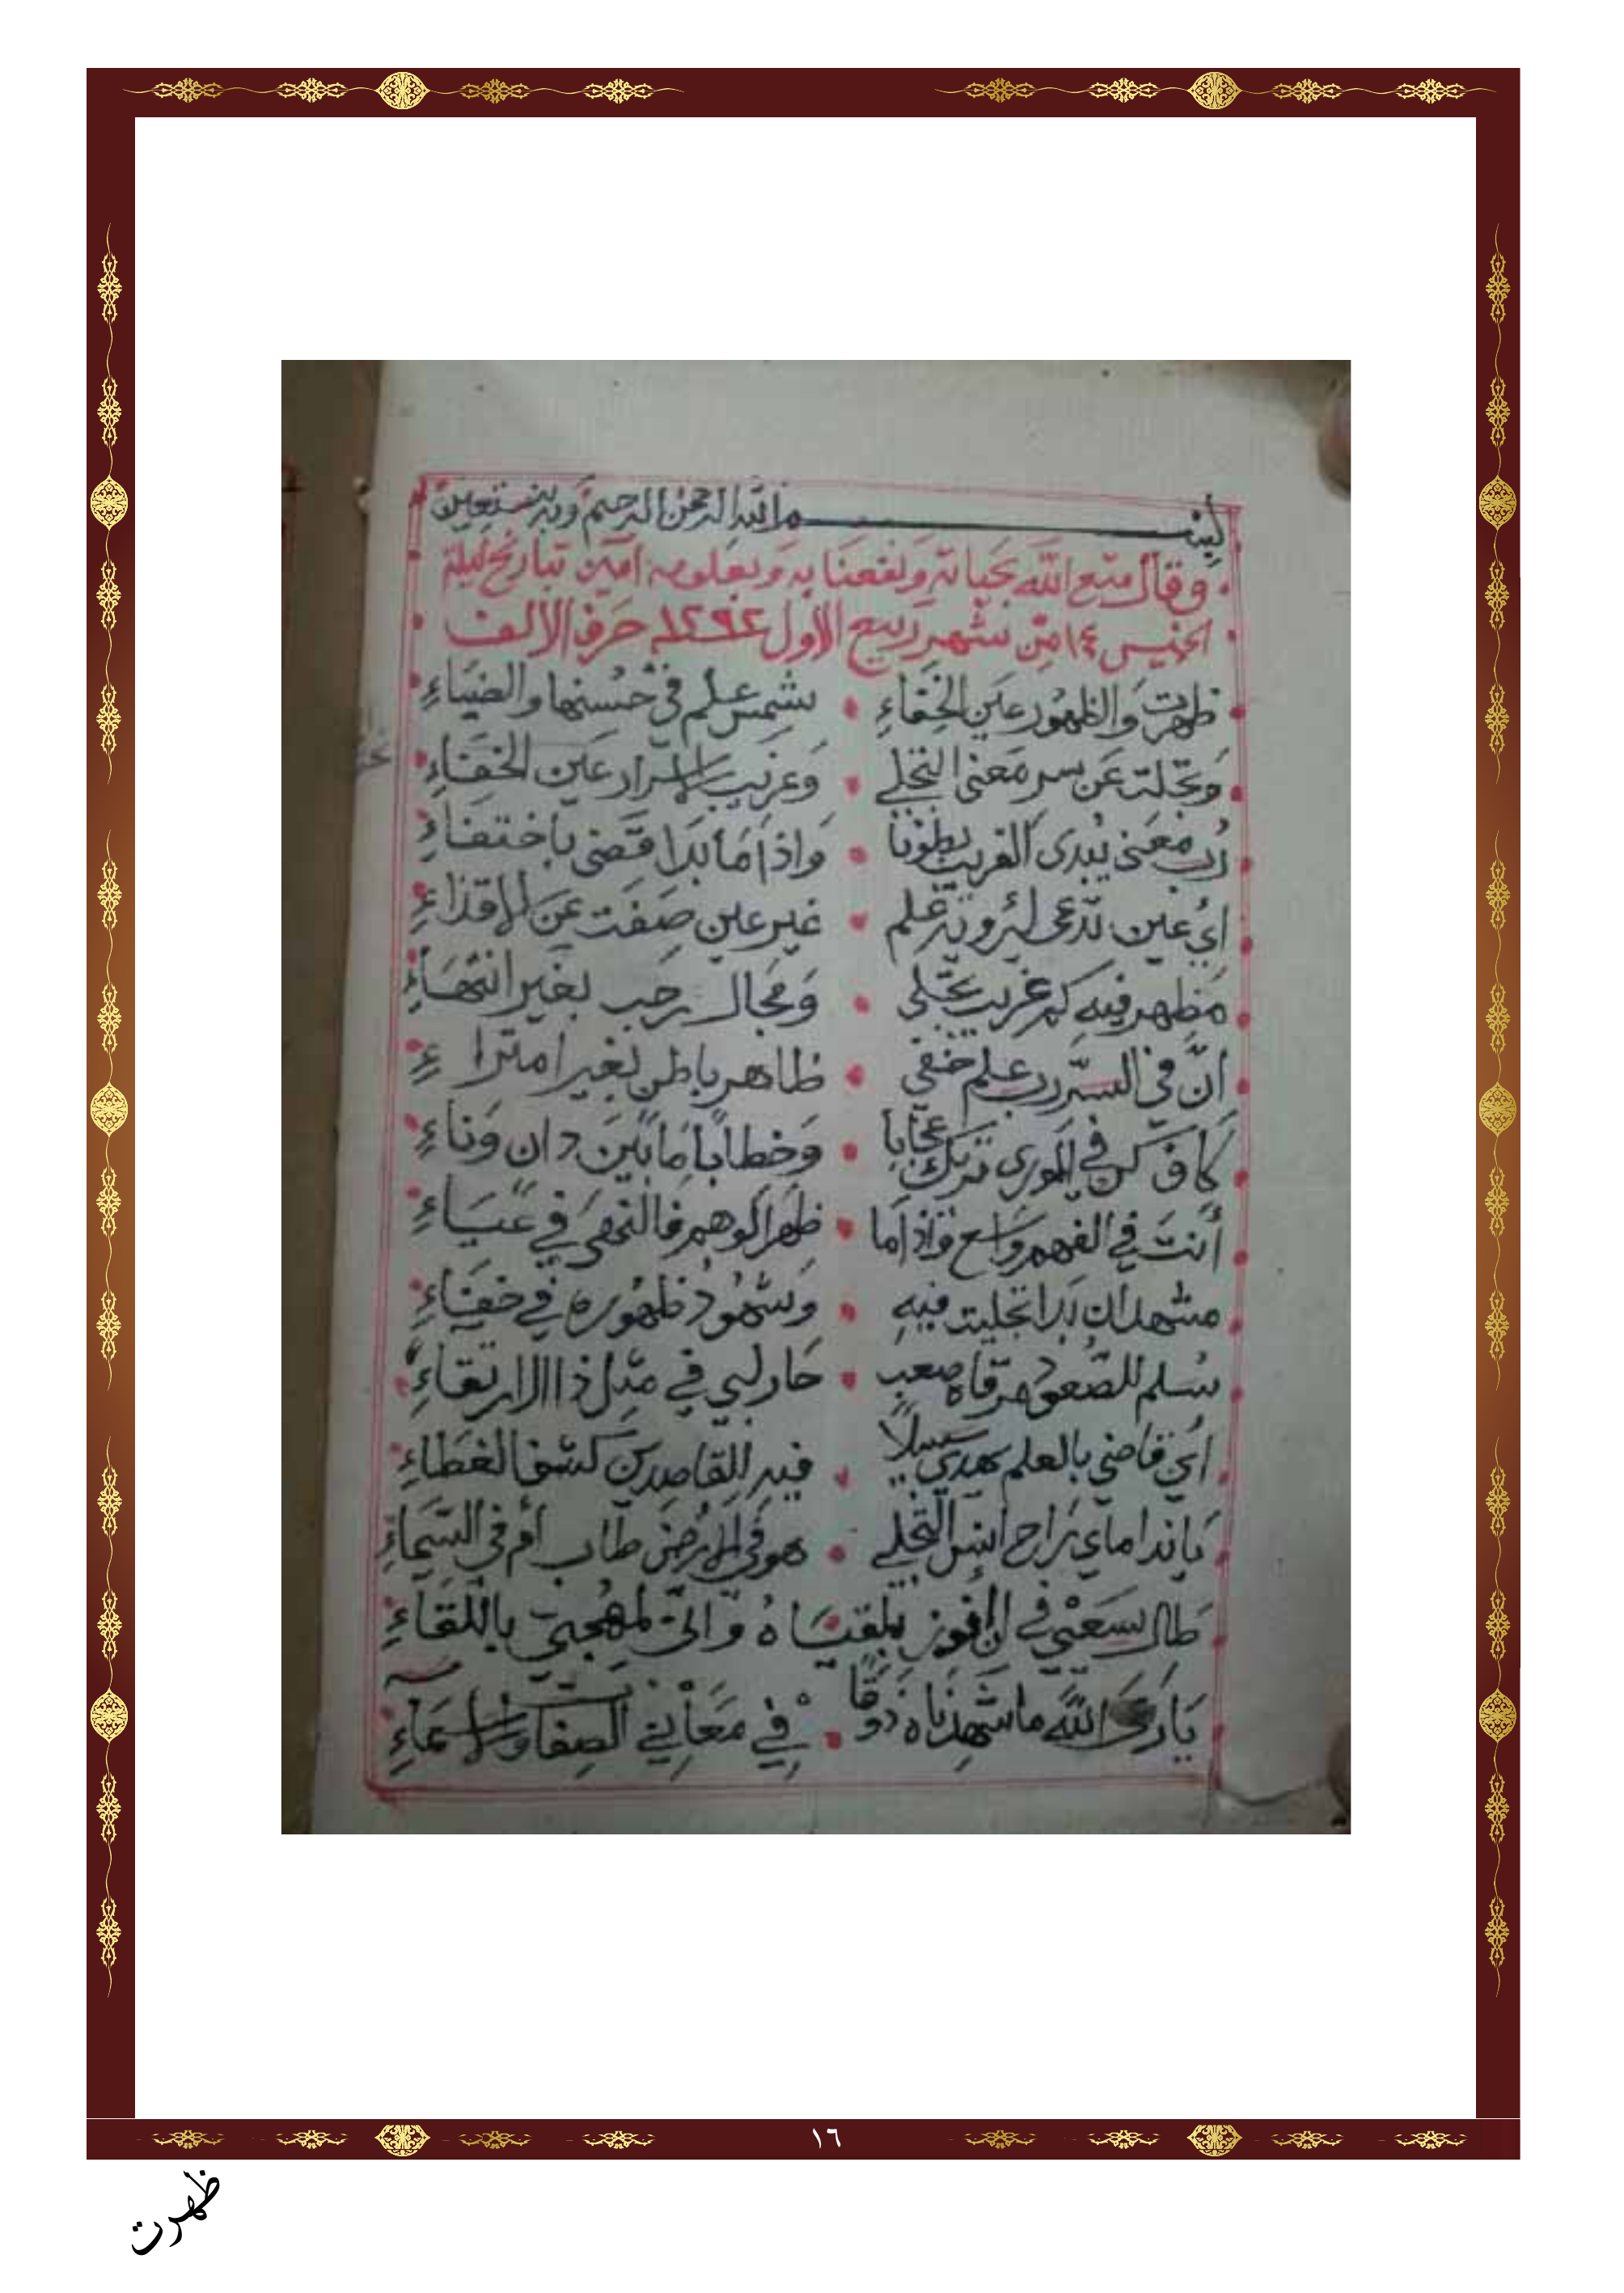 بسم الله الرحمن الرحيم وبه نستعين
وقال متع الله بحياته ونفعنا به وبعلومه امين بتاريخ ليلة
الخميس ١٤ من شهر ربيع الاول ١٢٩٢ حرف الالف
ظهرت وَالظهُور عَين الخَفَاءِ • شمس علم في حُسنها والضيَاءِ
وَتجَلت عَن سر مَعنى التجلي • وَغريب الاسرار عَين الخفَاءِ
رُب مَعنى يُبدى الغريب بطونا • وَاذا مَا بَدَا قضى باختفاءِ
ايُ عين تدعى له رؤية علم • غير عين صفَت عَن الاقذاءِ
مَظهر فيهِ كم غريب تجلى • وَمجال رحب بغير انتهَاءِ
انَّ في السّر رب علم خفي • ظاهر باطن بغير امتراءِ
كاف كن في الورى تريك عجَابا • وَخطابا مَا بَين دان وَناءِ
أنتَ في الفهم واسع وَاذا ما • ظهرَ الوهم فالنهى في عَيَاءِ
مشهد ان بدا تجليت فيهِ • وَشهُودُ ظهُوره في خفَاءِ
سُلم للصّعود مرقاه صعب • حَار لبي في مثل ذا الارتقاءِ
اي قاضي بالعلم يهدي سبيلا • فيه للقاصدين كشف الغطاءِ
يَا نداماي رَاح انس التجلي • هو في الارض طاب أم في السَّماءِ
طَال سَعْيي في الفوز بلقيَاهُ وَ الىّ لمهجتي باللقَاءِ
بَارَك الله ما شهدناه ذوقا • في مَعَاني الصفات والاسمَاءِ
١٦
ظهرت